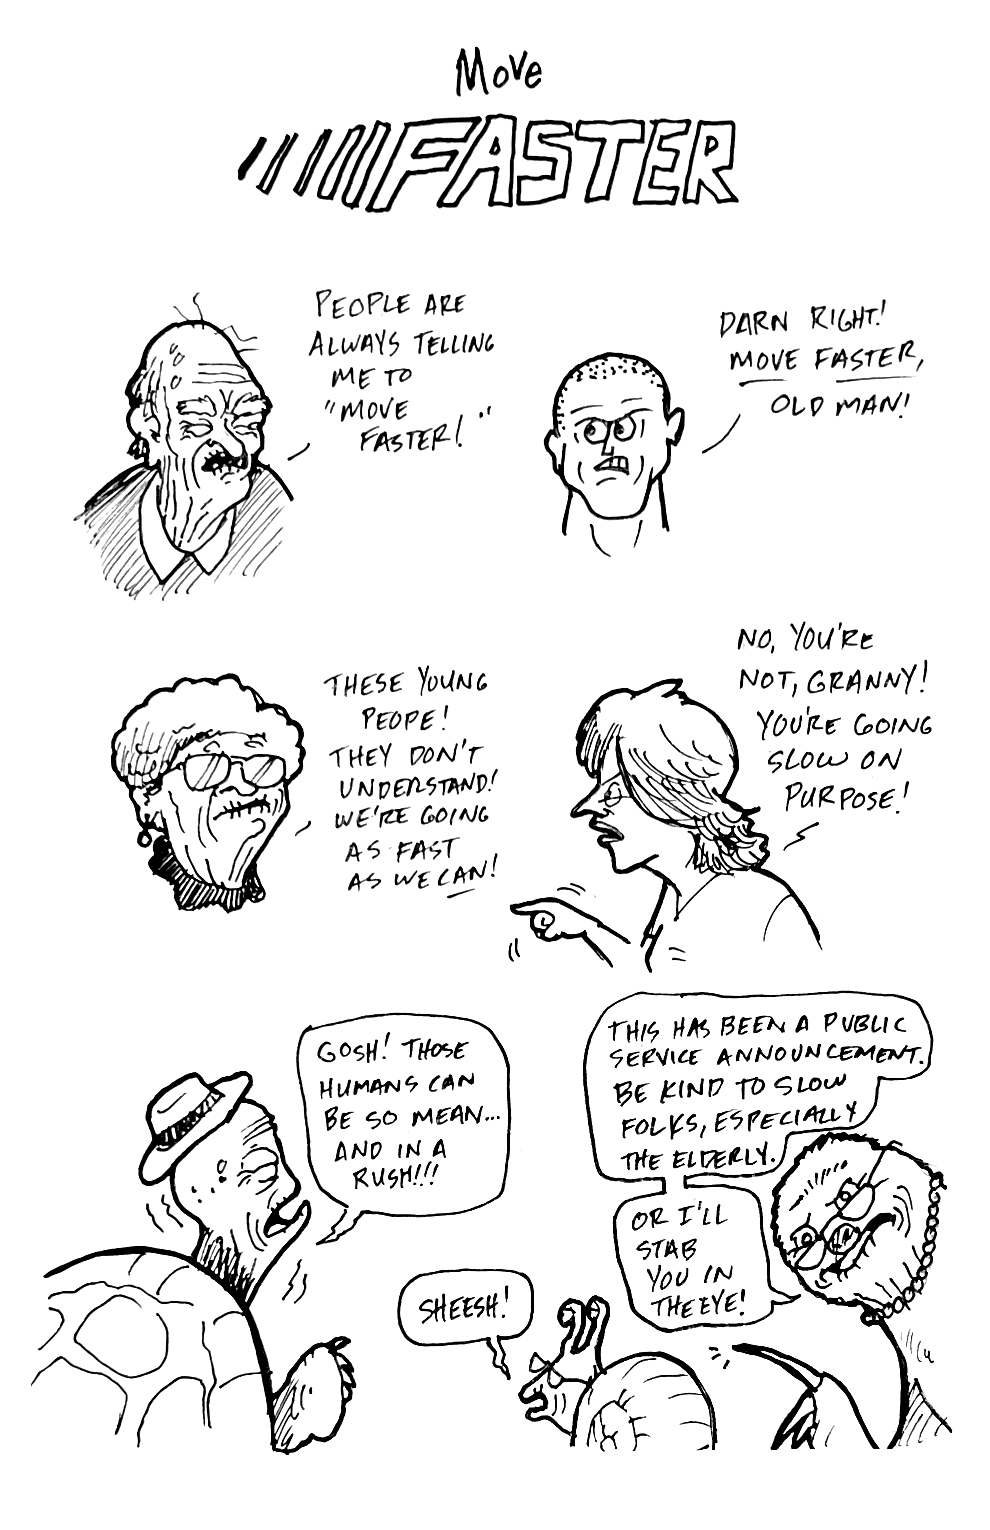 Move
FASTER
PEOPLE ARE
ALWAYS TELLING
ME TO
"MOVE
FASTER!"
DARN RIGHT!
MOVE FASTER,
OLD MAN!
THESE YOUNG
PEOPE!
THEY DON'T
UNDERSTAND!
WE'RE GOING
AS FAST
AS WE CAN!
NO, YOU'RE
NOT, GRANNY!
YOU'RE GOING
SLOW ON
PURPOSE!
GOSH! THOSE
HUMANS CAN
BE SO MEAN...
AND IN A
RUSH!!!
THIS HAS BEEN A PUBLIC
SERVICE ANNOUNCEMENT.
BE KIND TO SLOW
FOLKS, ESPECIALLY
THE ELDERLY.
OR I'LL
STAB
YOU IN
THE EYE!
SHEESH!